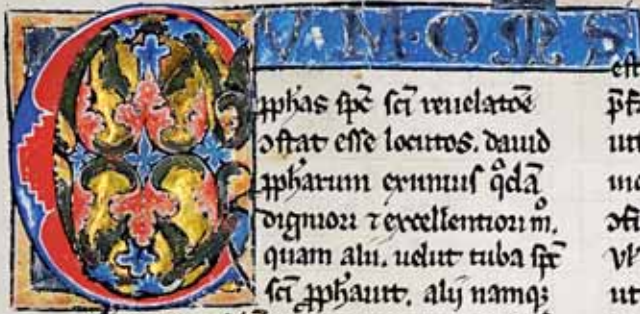 CUM·OMS
ꝓphas spc̄ sc̄i reuelatōe
ↄstat esse locutos. dauid
ꝓphetarum eximius q̊dā
digniori ⁊ excellentiori m̊.
quam alii. uelut tuba spc̄
sc̄i ꝓphauit. alij namqꝫ
est
ut